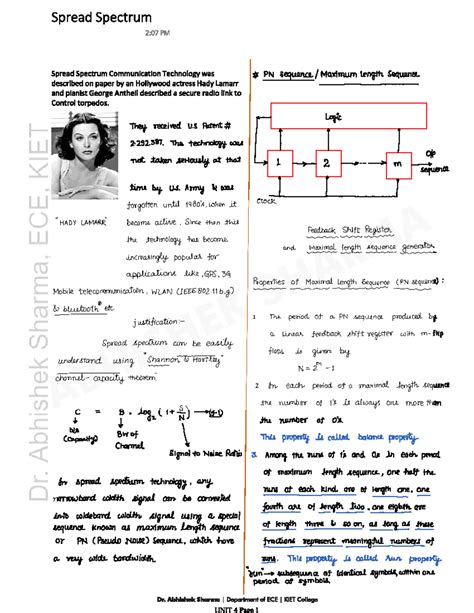 Spread Spectrum
2:07 PM
Spread Spectrum Communication Technology was
described on paper by an Hollywood actress Hady Lamarr
and pianist George Antheil described a secure radio link to
Control torpedos.
They received U.S Patent #
2.292.387. This technology was
not taken seriously at that
time by U.S. Army & was
forgotten until 1980's, when it
"HADY LAMARR"
became active. Since then this
the technology has become
increasingly popular for
applications like, GPS, 3G
Mobile telecommunication, WLAN (IEEE 802.11 b.g)
& bluetooth etc
justification:-
Spread spectrum can be easily
understand using "Shannon & Hartley
channel-capacity theorem"
C = B. log2 (1 + S/N) →(1)
bits
(Capacity)
BW of
Channel
Signal to Noise Ratio
In spread spectrum technology, any
narrowband width signal can be converted
into wideband width signal using a special
sequence known as maximum length sequence
or PN (Pseudo Noise) Sequence, which have
a very wide bandwidth.
# PN Sequence / Maximum Length Sequence
Logic
1
2
m
O/p
sequence
Clock
Feedback Shift Register
and Maximal length sequence generator
Properties of Maximal Length Sequence (PN sequence):
1 The period of a PN sequence produced by
a linear feedback shift register with m-flip
flops is given by
N = 2^m - 1
2 In each period of a maximal length sequence
the number of 1's is always one more than
the number of 0's.
This property is called balance property
3. Among the runs of 1's and 0s in each period
of maximum length sequence, one half the
runs of each kind are of length one, one
fourth are of length two, one eighth are
of length three & so on, as long as these
fractions represent meaningful numbers of
runs. This property is called run property.
"run" → subsequence of identical symbols, within one
period of symbols.
Dr. Abhishek Sharma, ECE, KIET
ABHISHEK SHARMA
Dr. Abhishek Sharma | Department of ECE | KIET College
UNIT 4 Page 1